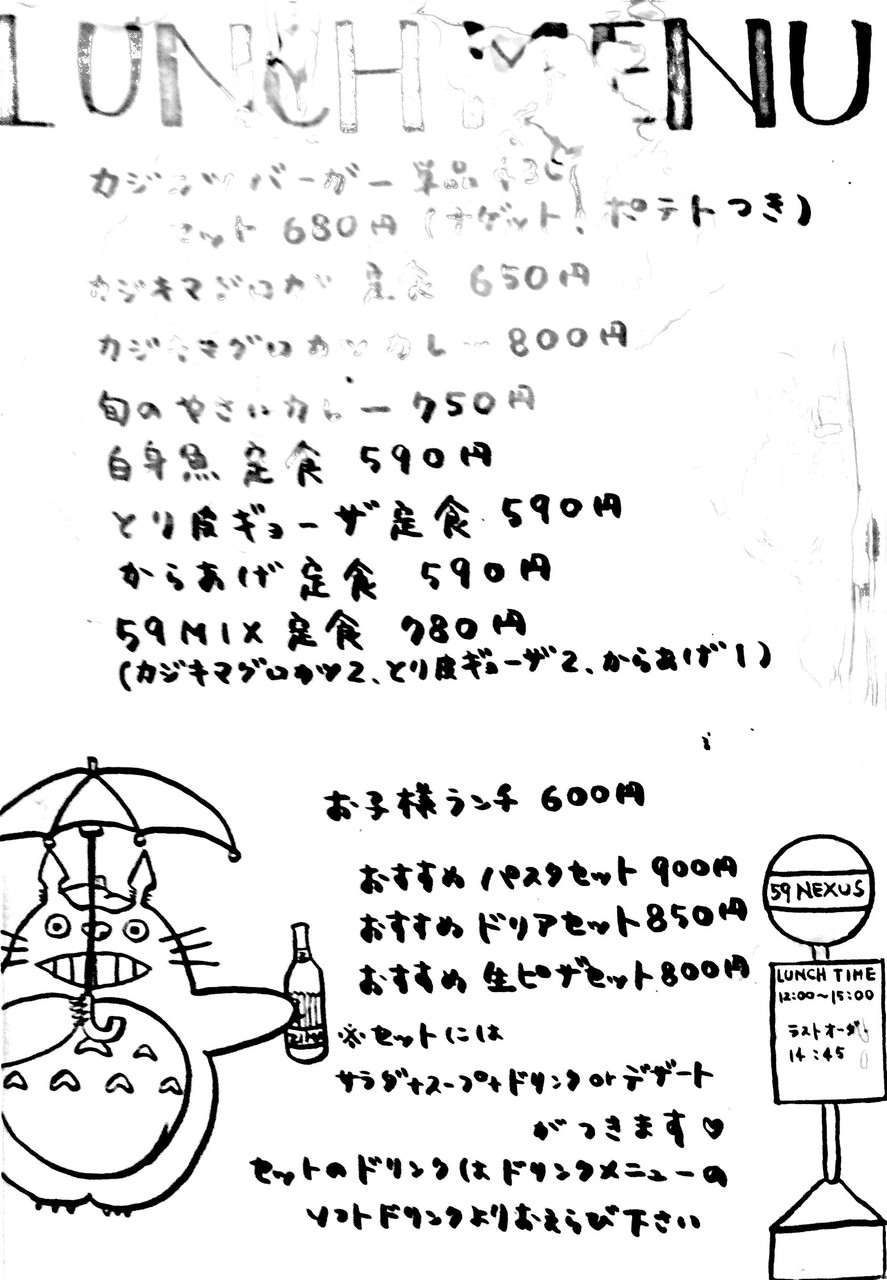 LUNCH MENU
カジカツバーガー 単品
セット 680円 (ナゲット、ポテトつき)
カジキマグロカツ 定食 650円
カジキマグロカツカレー 800円
旬のやさいカレー 750円
白身魚 定食 590円
とり皮ギョーザ定食 590円
からあげ定食 590円
59MIX 定食 780円
(カジキマグロカツ2、とり皮ギョーザ2、からあげ1)
お子様ランチ 600円
おすすめ パスタセット 900円
おすすめ ドリアセット 850円
おすすめ 生ピザセット 800円
※セットには
サラダ+スープ+ドリンク or デザート
がつきます♡
セットのドリンクはドリンクメニューの
ソフトドリンクよりおえらび下さい
59 NEXUS
LUNCH TIME
12:00～15:00
ラストオーダー
14:45